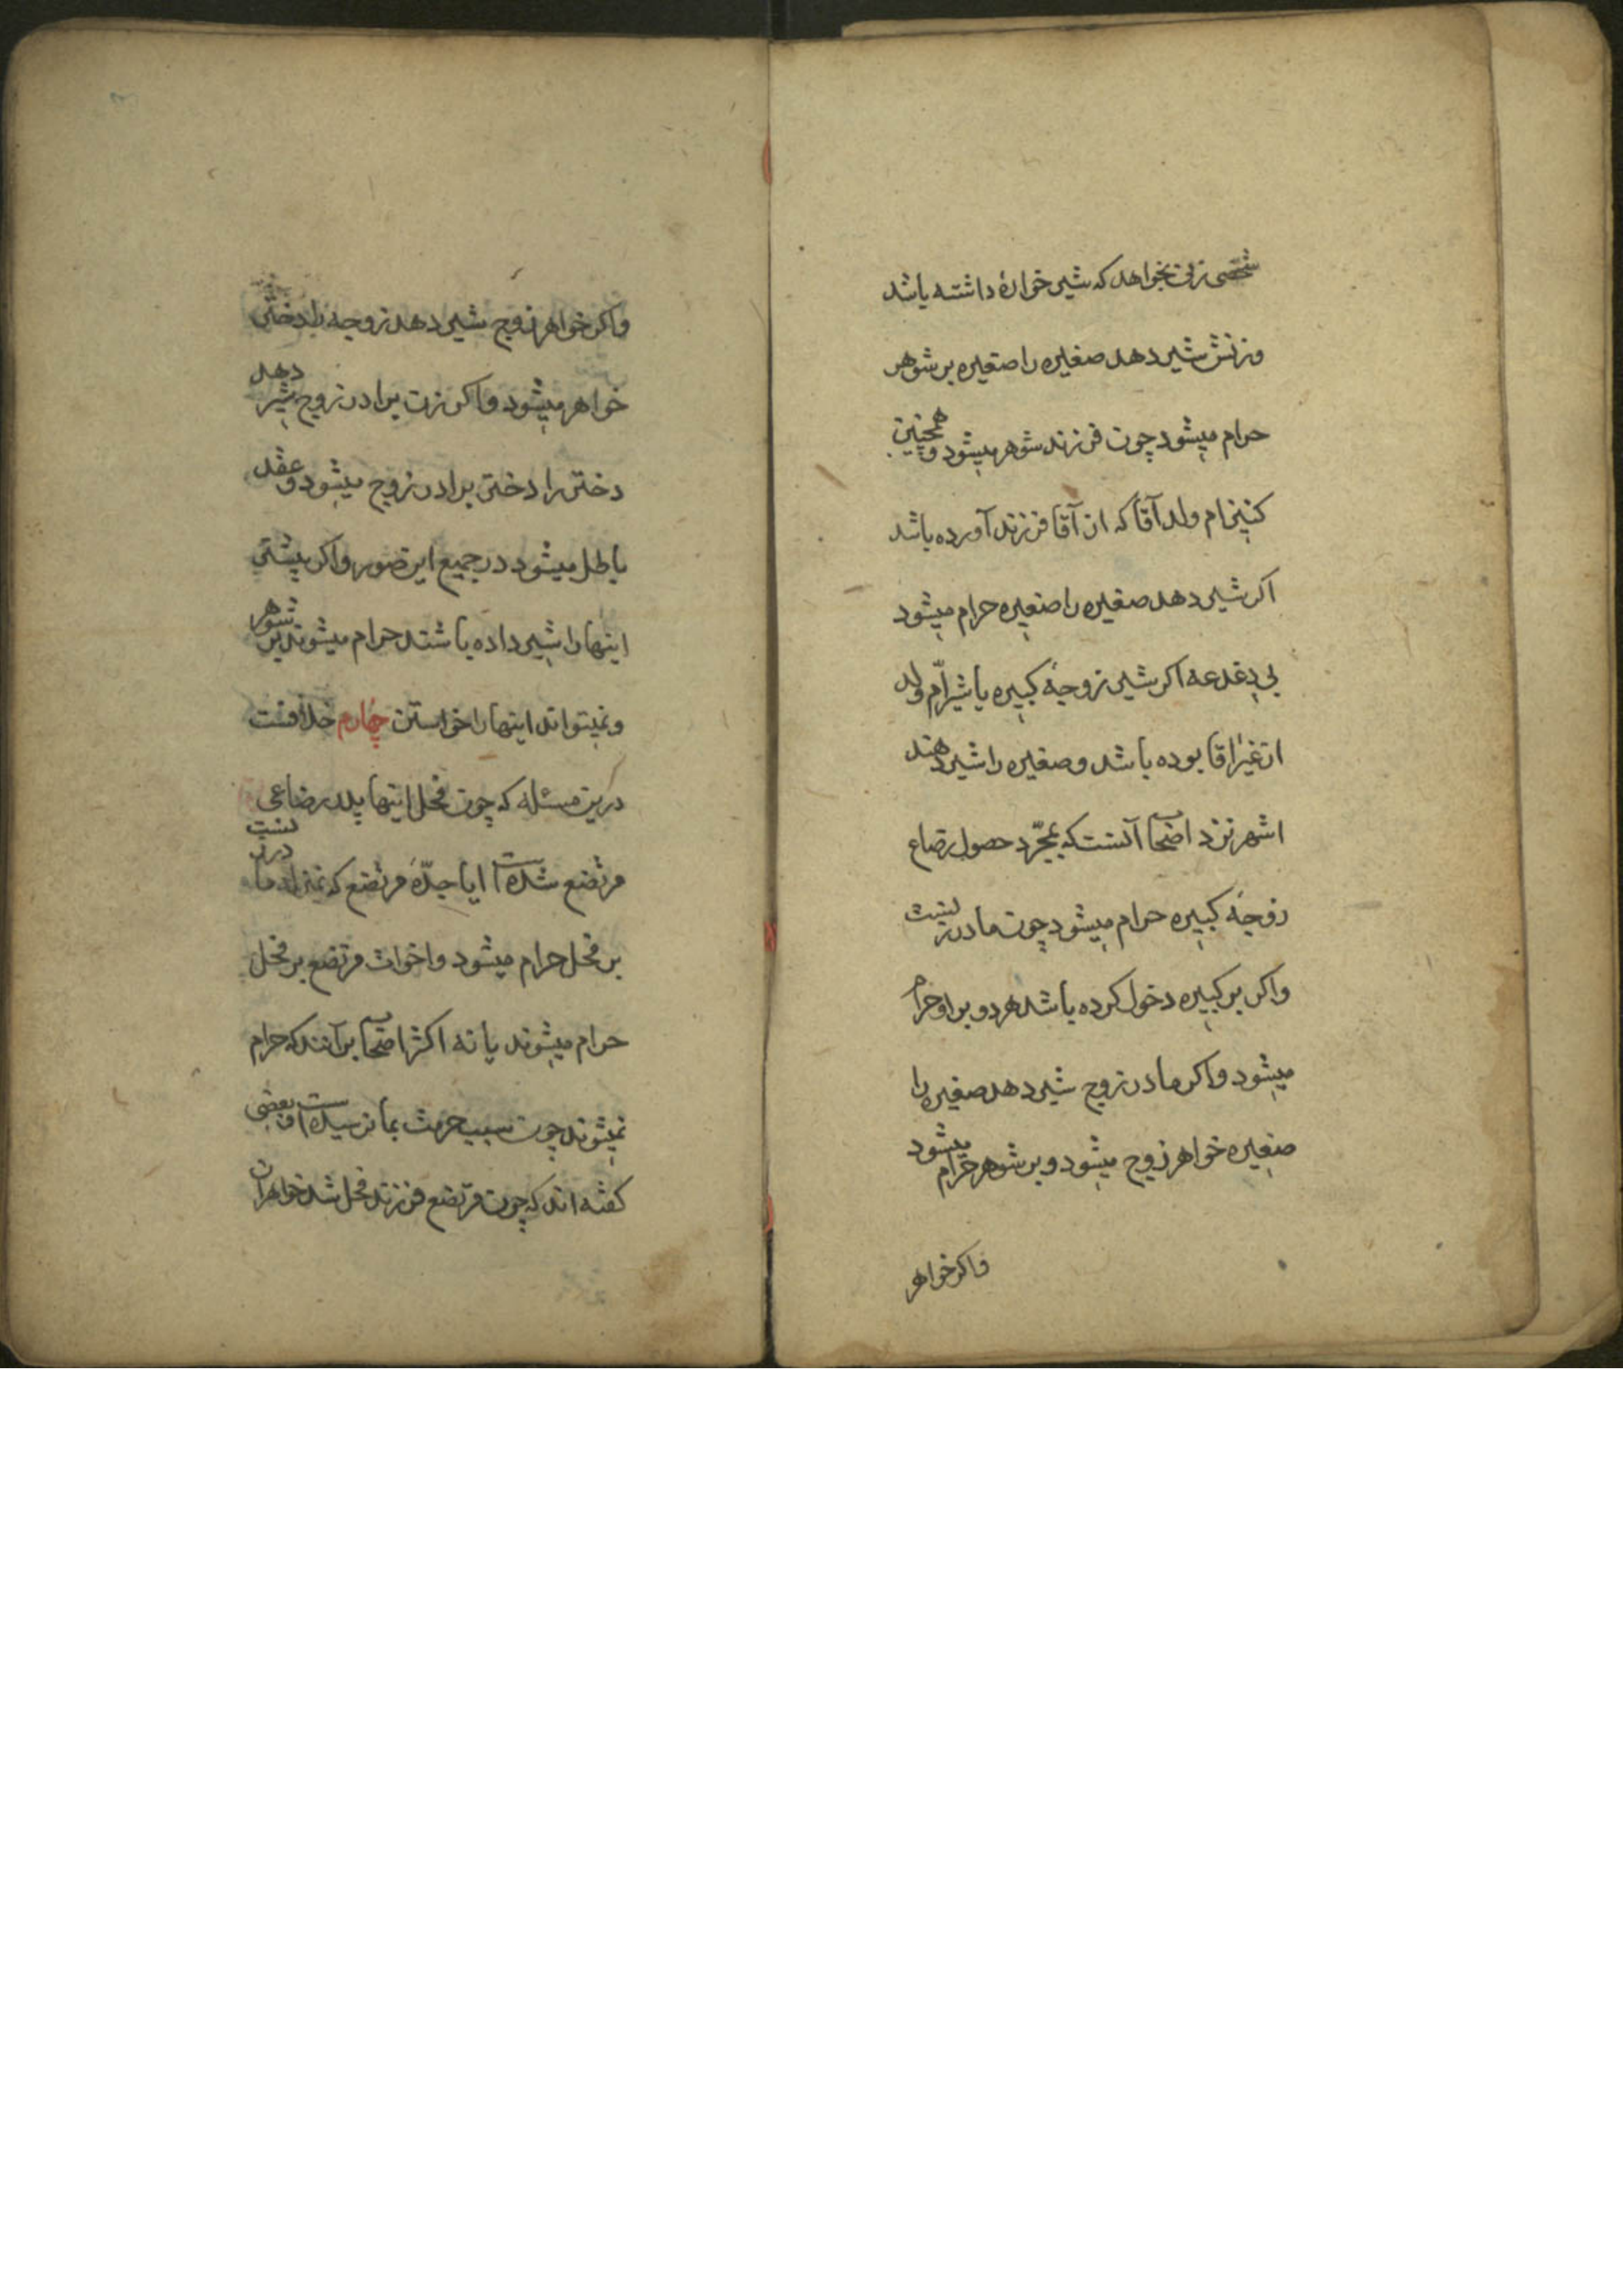 شخصی زنی بخواهد که شیر خواره داشته باشد
و زنش شیر دهد صغیره را صغیره بر شوهر
حرام میشود چون فرزند شوهر میشود و همچنین
کنیز ام ولد آقا که از آقا فرزند آورده باشد
اکر شیر دهد صغیره را صغیره حرام میشود
بی دغدغه اکر شیر زوجهٔ کبیره یا شیر امّ ولد
از غیر اقا بوده باشد و صغیره را شیر دهند
اشهر نزد اصحاب آنست که بمجرّد حصول رضاع
زوجهٔ کبیره حرام میشود چون مادر زنست
واکر بر کبیره دخول کرده باشد هر دو بر او حرام
میشود واکر مادر زوج شیر دهد صغیره را
صغیره خواهر زوج میشود و بر شوهر حرام میشود
واکر خواهر
واکر خواهر زوج شیر دهد زوجه را دختر
خواهر میشود واکر زن برادر زوج شیر دهد
دختر را دختر برادر زوج میشود و عقد
باطل میشود در جمیع این صور واکر پیشتر
اینها را شیر داده باشند حرام میشوند بر شوهر
و نمیتواند اینها را خواستن چهارم خلافست
درین مسئله که چون فحل اینها پدر رضاعی
مرتضع شده است ایا جدّهٔ مرتضع که بمنزله مادر زنست
بر فحل حرام میشود و اخوات مرتضع بر فحل
حرام میشوند یا نه اکثر اصحاب برآنند که حرام
نمیشوند چون سبب حرمت بما نرسیده است و بعضی
کفته اند که چون مرتضع فرزند فحل شد خواهران